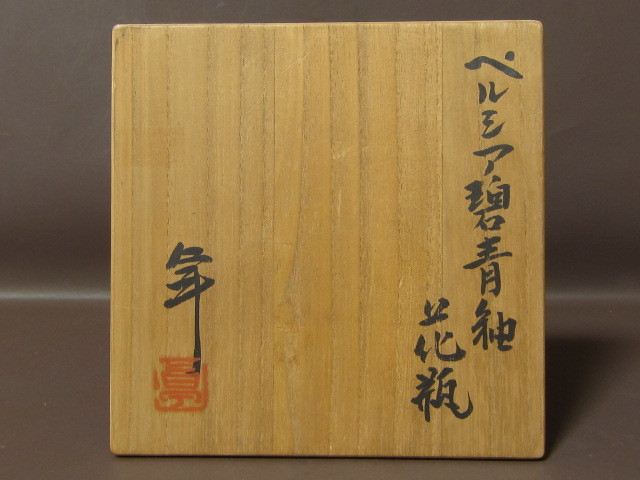 ペルシア碧青釉
花瓶